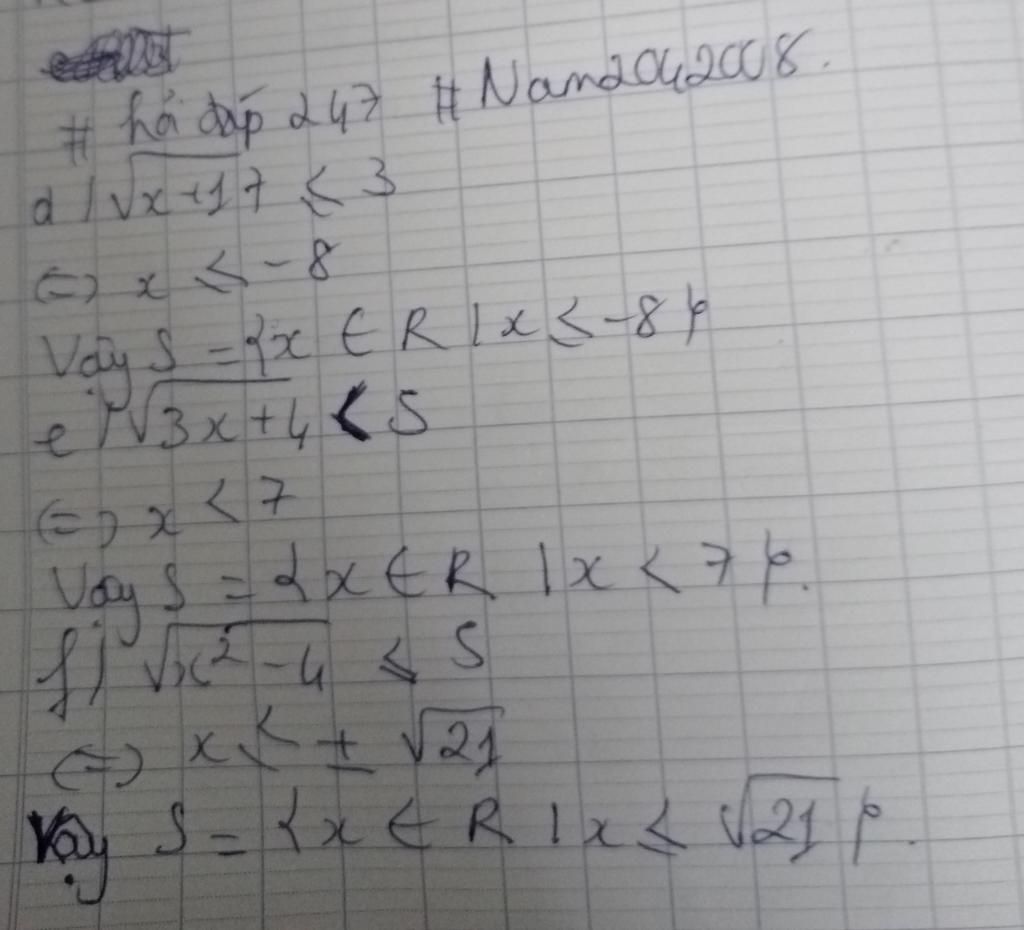 # hỏi đáp 247 #Nam2042008.
d) √x+17 ≤ 3
⇔ x ≤ -8
Vậy S = {x ∈ R | x ≤ -8}
e) √3x+4 < 5
⇔ x < 7
Vậy S = {x ∈ R | x < 7}.
f) √x² - 4 ≤ 5
⇔ x ≤ ± √21
Vậy S = {x ∈ R | x ≤ √21}.